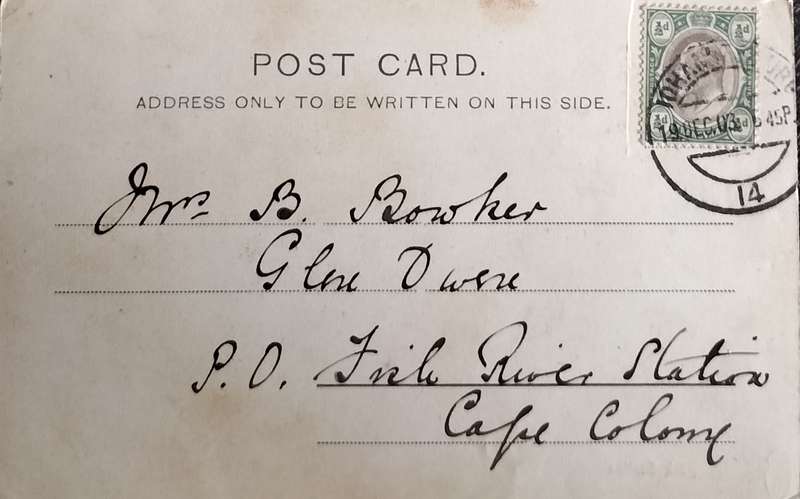 POST CARD.
ADDRESS ONLY TO BE WRITTEN ON THIS SIDE.
½d ½d
½d ½d
19 DEC. 03 45P.
14
Mrs B. Bowker
Glen Owen
P.O. Fish River Station
Cape Colony